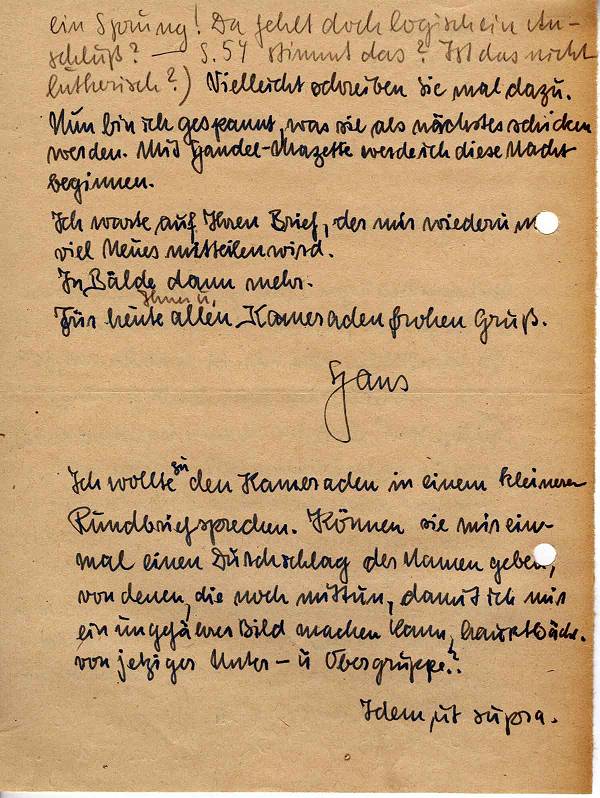 ein Sprung! Da fehlt doch logisch ein An-
schluß? — S. 54 stimmt das? Ist das nicht
lutherisch?) Vielleicht schreiben sie mal dazu.
Nun bin ich gespannt, was sie als nächstes schicken
werden. Mit Handel-Mazette werde ich diese Nacht
beginnen.
Ich warte auf Ihren Brief, der mir wiederum
viel Neues mitteilen wird.
In Bälde dann mehr.
Ihnen u.
Für heute allen Kameraden frohen Gruß.
Hans
Ich wollte zu den Kameraden in einem kleineren
Rundbrief sprechen. Können sie mir ein-
mal einen Durchschlag der Namen geben,
von denen, die noch mittun, damit ich mir
ein ungefähres Bild machen kann, hauptsächl.
von jetziger Unter- u Obergruppe?
Idem ut supra.